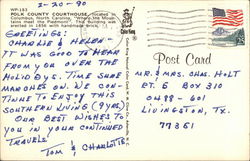 2-20-90
WP-183
POLK COUNTY COURTHOUSE, located in
Columbus, North Carolina, "Where the Moun-
tains meet the Piedmont". This building was
erected in 1856 with handmade brick.
GREETINGS:
CHARLIE & HELEN-
IT WAS GOOD TO HEAR
FROM YOU OVER THE
HOLIDAYS. TIME SURE
MARCHES ON. WE CON-
TINUE TO ENJOY THIS
SOUTHERN LIVING (9 YRS)
OUR BEST WISHES TO
YOU IN YOUR CONTINUED
TRAVELS
TOM & CHARLOTTE
Post Card
MR. & MRS. CHAS. HOLT
RT. 6 BOX 310
LIVINGSTON, TX
77351